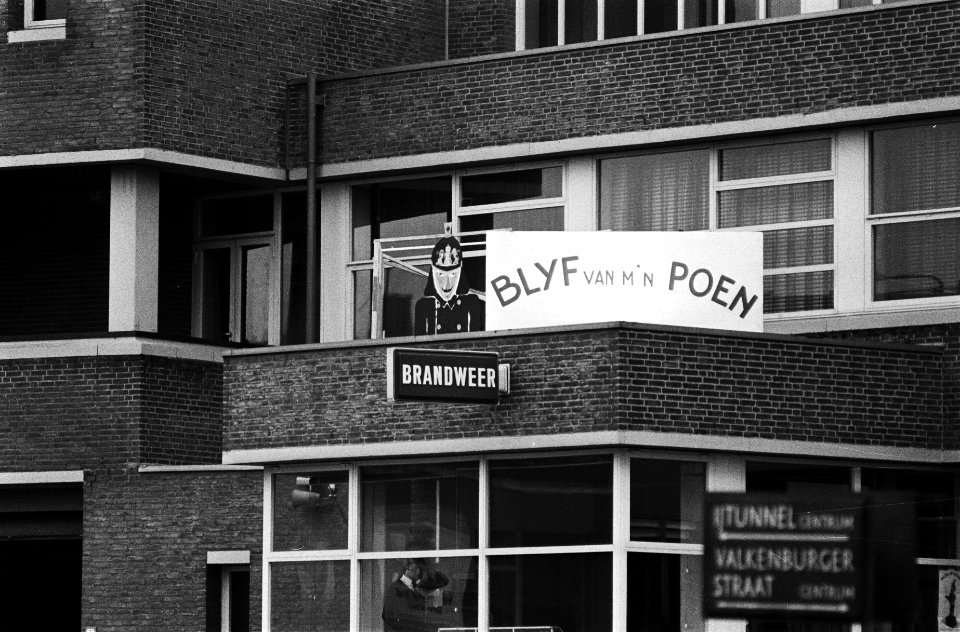 BLYF VAN M'N POEN
BRANDWEER
IJTUNNEL CENTRUM
VALKENBURGER
STRAAT CENTRUM